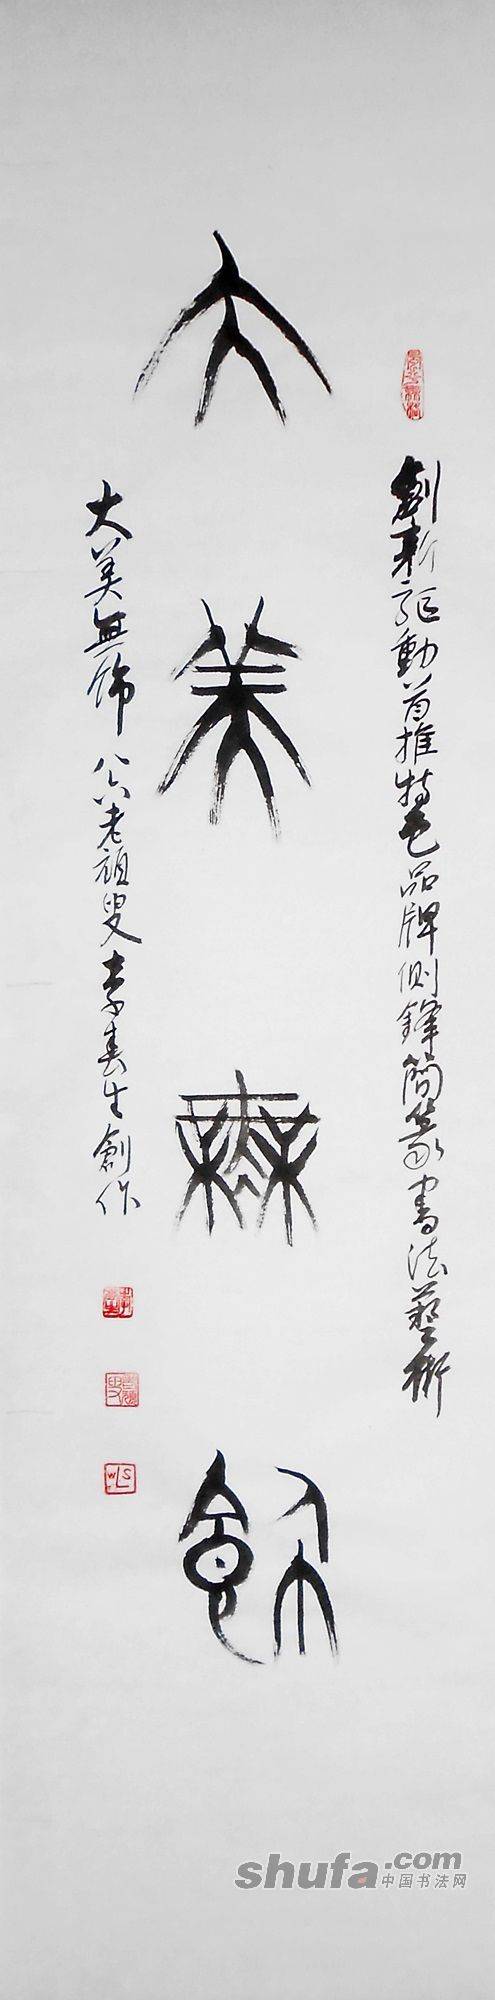 創新驱動首推特色品牌側鋒簡篆書法藝術
大美無飾
大美無饰 八六老頑叟李春生創作
shufa.com
中国书法网